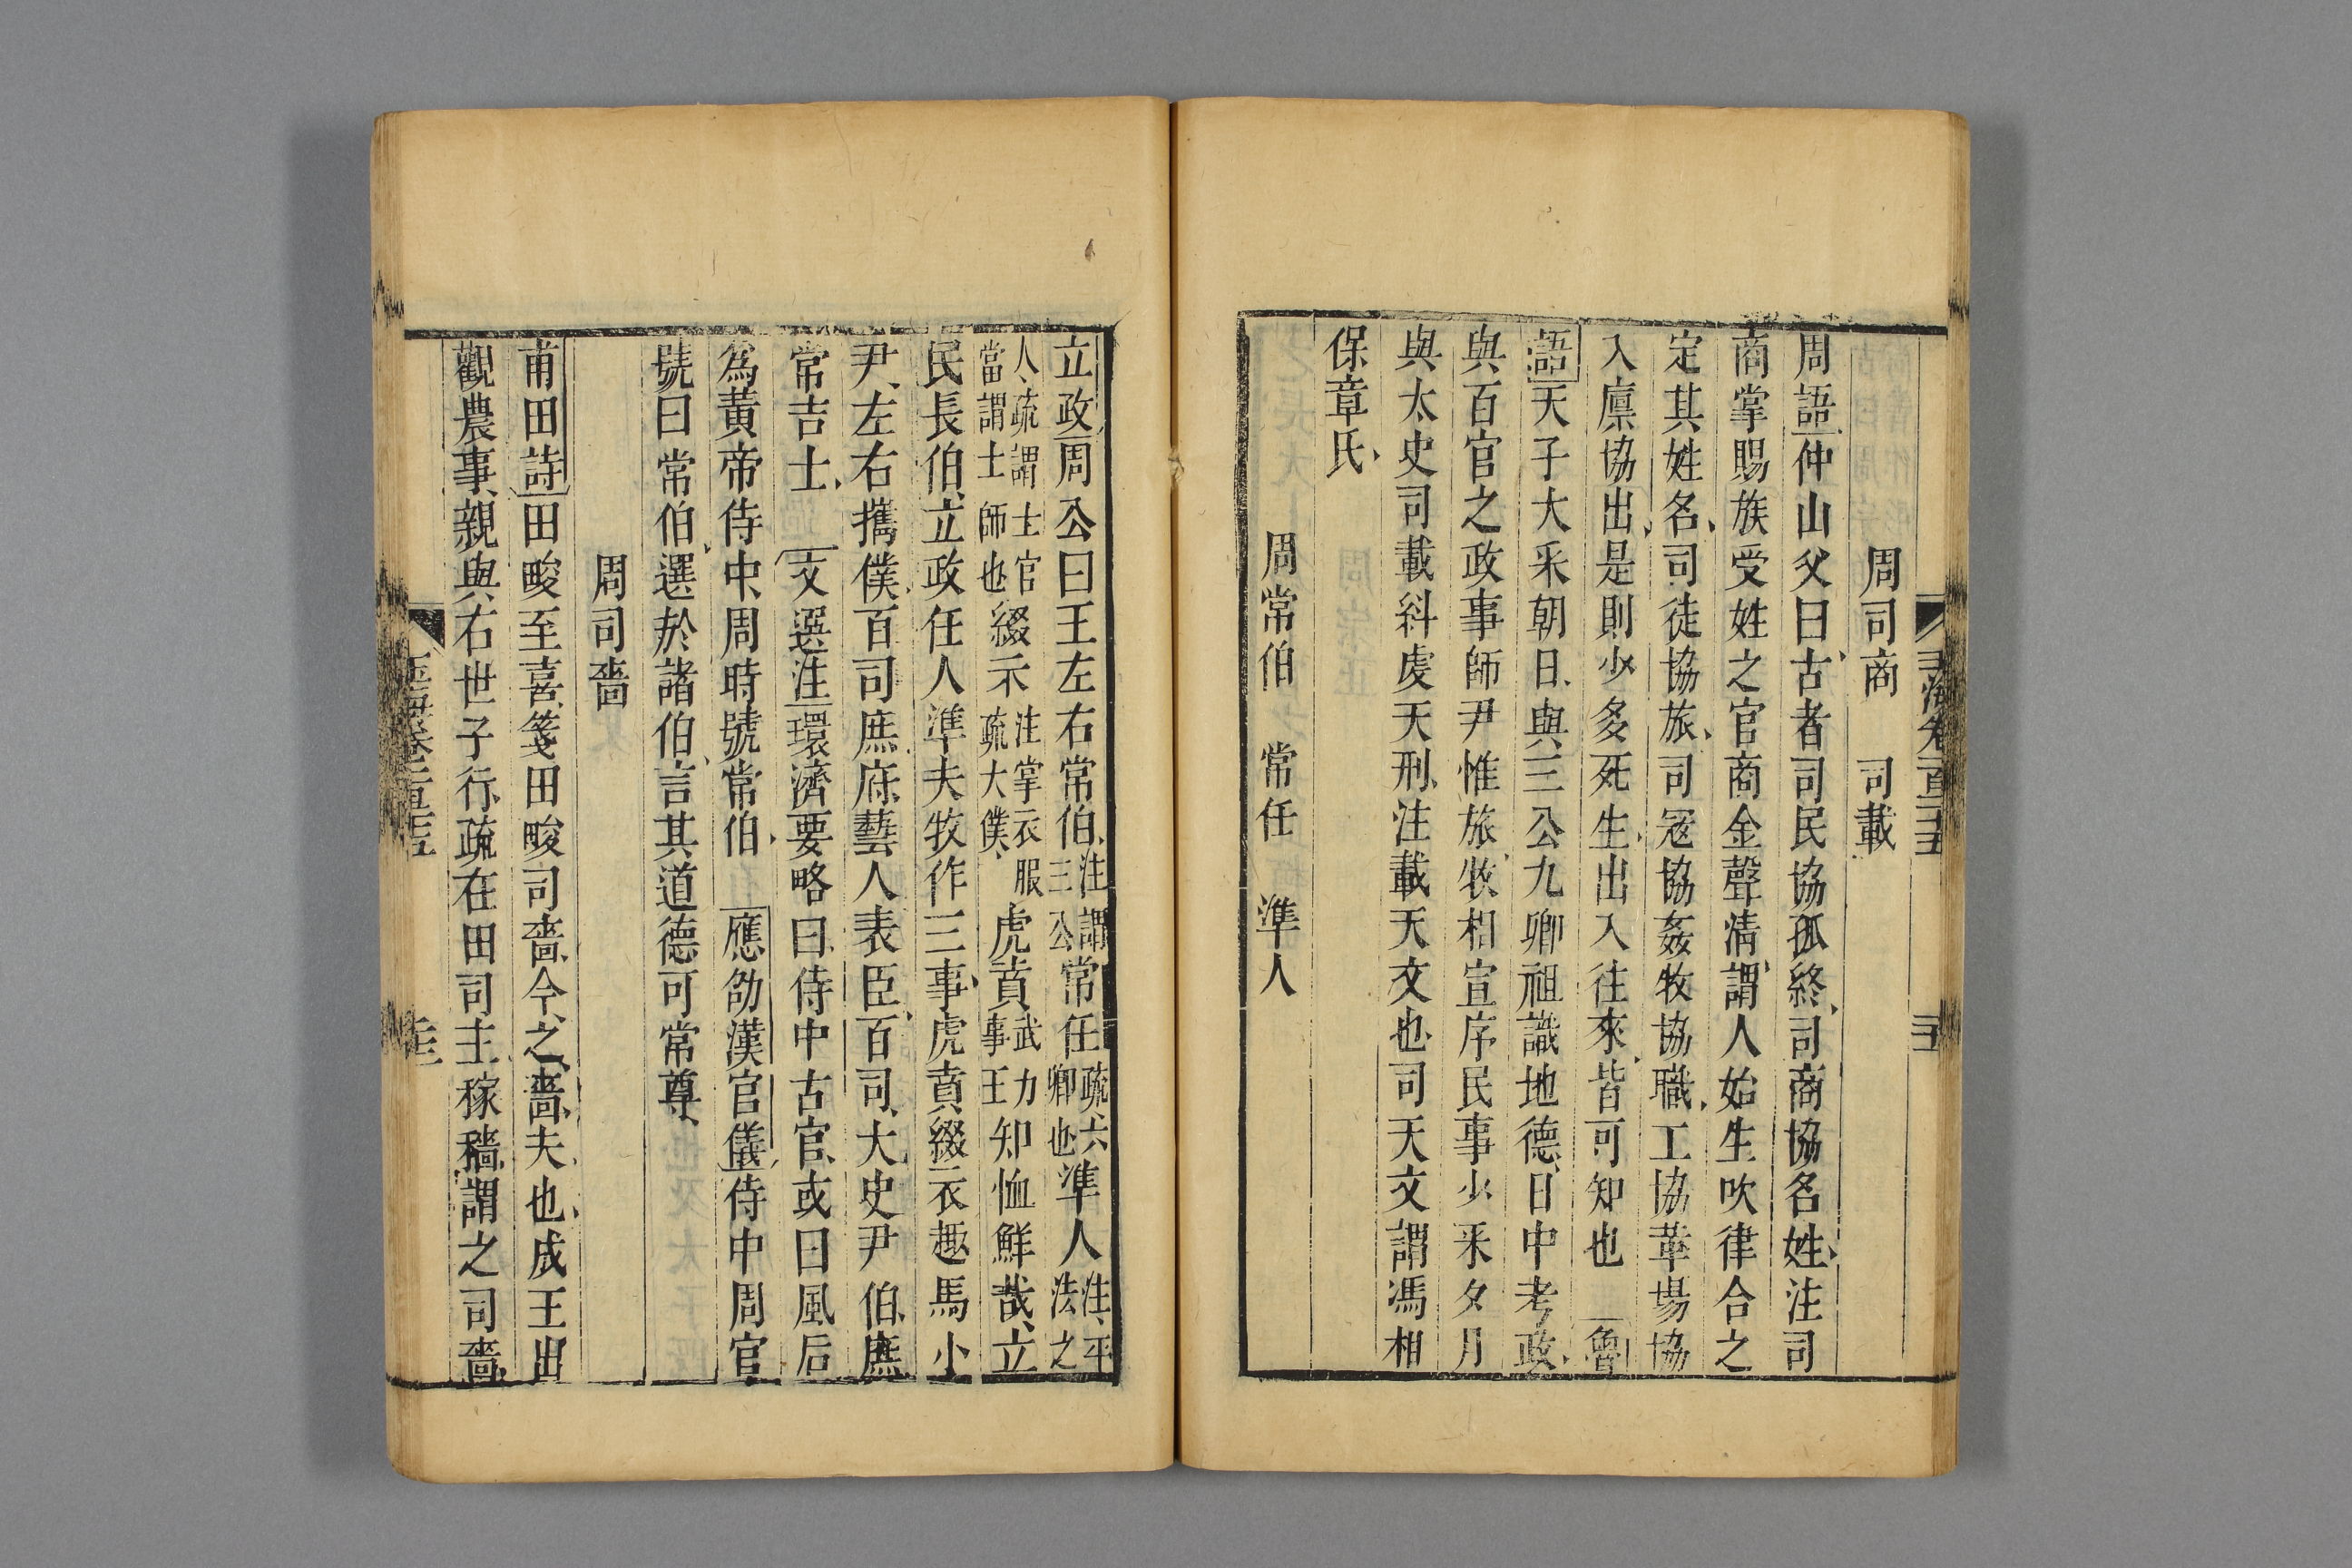 周司商　司載
周語仲山父曰古者司民協孤終司商協名姓注司
商掌賜族受姓之官商金聲清謂人始生吹律合之
定其姓名司徒協旅司寇協姦牧協職工協革場協
入廩協出是則少多死生出入往來皆可知也　魯
語天子大采朝日與三公九卿祖識地德日中考政
與百官之政事師尹惟旅牧相宣序民事少采夕月
與太史司載糾虔天刑注載天文也司天文謂馮相
保章氏
周常伯　常任　準人
立政周公曰王左右常伯注謂三公常任疏六卿也準人注平法之
人疏謂士官當謂士師也綴示注掌衣服疏大僕虎賁武力事王知恤鮮哉立
民長伯立政任人準夫牧作三事虎賁綴衣趣馬小
尹左右攜僕百司庶府藝人表臣百司大史尹伯庶
常吉士　文選注環濟要略曰侍中古官或曰風后
為黃帝侍中周時號常伯　應劭漢官儀侍中周官
號曰常伯選於諸伯言其道德可常尊
周司嗇
甫田詩田畯至喜箋田畯司嗇今之嗇夫也成王出
觀農事親與右世子行疏在田司主稼穡謂之司嗇